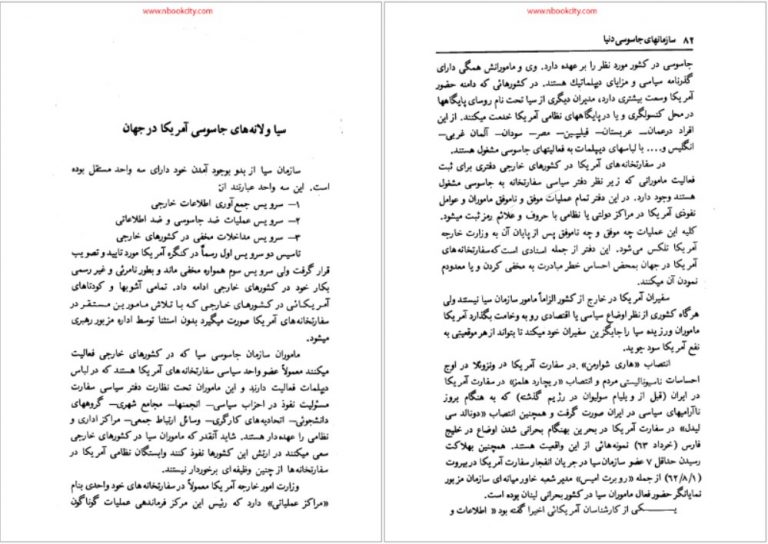 www.nbookcity.com
سیا و لانه‌های جاسوسی آمریکا در جهان
سازمان سیا از بدو بوجود آمدن خود دارای سه واحد مستقل بوده
است. این سه واحد عبارتند از:
۱– سرویس جمع‌آوری اطلاعات خارجی
۲– سرویس عملیات ضد جاسوسی و ضد اطلاعاتی
۳– سرویس مداخلات مخفی در کشورهای خارجی
تاسیس دو سرویس اول رسماً در کنگره آمریکا مورد تایید و تصویب
قرار گرفت ولی سرویس سوم همواره مخفی ماند و بطور نامرئی و غیر رسمی
بکار خود در کشورهای خارجی ادامه داد. تمامی آشوبها و کودتاهای
آمریکائی در کشورهای خارجی که با تلاش مامورین مستقر در
سفارتخانه‌های آمریکا صورت میگیرد بدون استثنا توسط اداره مزبور رهبری
میشود.
ماموران سازمان جاسوسی سیا که در کشورهای خارجی فعالیت
میکنند معمولاً عضو واحد سیاسی سفارتخانه‌های آمریکا هستند که در لباس
دیپلمات فعالیت دارند و این ماموران تحت نظارت دفتر سیاسی سفارت
مسئولیت نفوذ در احزاب سیاسی– انجمنها– مجامع شهری– گروههای
دانشجوئی– اتحادیه‌های کارگری– وسائل ارتباط جمعی– مراکز اداری و
نظامی را عهده‌دار هستند. شاید آنقدر که ماموران سیا در کشورهای خارجی
سعی میکنند در ارتش این کشورها نفوذ کنند وابستگان نظامی آمریکا در
سفارتخانه‌ها از چنین وظیفه‌ای برخوردار نیستند.
وزارت امور خارجه آمریکا معمولاً در سفارتخانه‌های خود واحدی بنام
«مراکز عملیاتی» دارد که رئیس این مرکز فرماندهی عملیات گوناگون
www.nbookcity.com
۸۲ سازمانهای جاسوسی دنیا
جاسوسی در کشور مورد نظر را بر عهده دارد. وی و مامورانش همگی دارای
گذرنامه سیاسی و مزایای دیپلماتیك هستند. در کشورهائی که دامنه حضور
آمریکا وسعت بیشتری دارد، مدیران دیگری از سیا تحت نام روسای پایگاهها
در محل کنسولگری و یا در پایگاههای نظامی آمریکا خدمت میکنند. از این
افراد درعمان– عربستان– فیلیپین– مصر– سودان– آلمان غربی–
انگلیس و.... با لباسهای دیپلمات به فعالیتهای جاسوسی مشغول هستند.
در سفارتخانه‌های آمریکا در کشورهای خارجی دفتری برای ثبت
فعالیت مامورانی که زیر نظر دفتر سیاسی سفارتخانه به جاسوسی مشغول
هستند وجود دارد. در این دفتر تمام عملیات موفق و ناموفق ماموران و عوامل
نفوذی آمریکا در مراکز دولتی یا نظامی با حروف و علائم رمز ثبت میشود.
کلیه این عملیات چه موفق و چه ناموفق پس از پایان آن به وزارت خارجه
آمریکا تلکس می‌شود. این دفتر از جمله اسنادی است که سفارتخانه‌های
آمریکا در جهان بمحض احساس خطر مبادرت به مخفی کردن و یا معدودم
نمودن آن میکنند.
سفیران آمریکا در خارج از کشور الزاماً مامور سازمان سیا نیستند ولی
هرگاه کشوری از نظر اوضاع سیاسی یا اقتصادی رو به وخامت بگذارد آمریکا
ماموران ورزیده سیا را جایگزین سفیران خود میکند تا بتواند از هر موقعیتی به
نفع آمریکا سود جوید.
انتصاب «هاری شوارمن» در سفارت آمریکا در ونزوبلا در اوج
احساسات ناسیونالیستی مردم و انتصاب «ریچارد هلمز» در سفارت آمریکا
در ایران (قبل از ویلیام سولیوان در رژیم گذشته) که به هنگام بروز
ناآرامیهای سیاسی در ایران صورت گرفت و همچنین انتصاب «دونالد سی
لیدل» در سفارت آمریکا در بحرین بهنگام بحرانی شدن اوضاع در خلیج
فارس (خرداد ۶۳) نمونه‌هائی از این واقعیت هستند. همچنین بهلاکت
رسیدن حداقل ۷ عضو سازمان سیا در جریان انفجار سفارت آمریکا در بیروت
(۶۲/۸/۱) از جمله «روبرت امیس» مدیر شعبه خاورمیانه‌ای سازمان مزبور
نمایانگر حضور فعال ماموران سیا در کشور بحرانی لبنان بوده است.
یــکی از کارشناسان آمریکائی اخیرا گفته بود «اطلاعات و